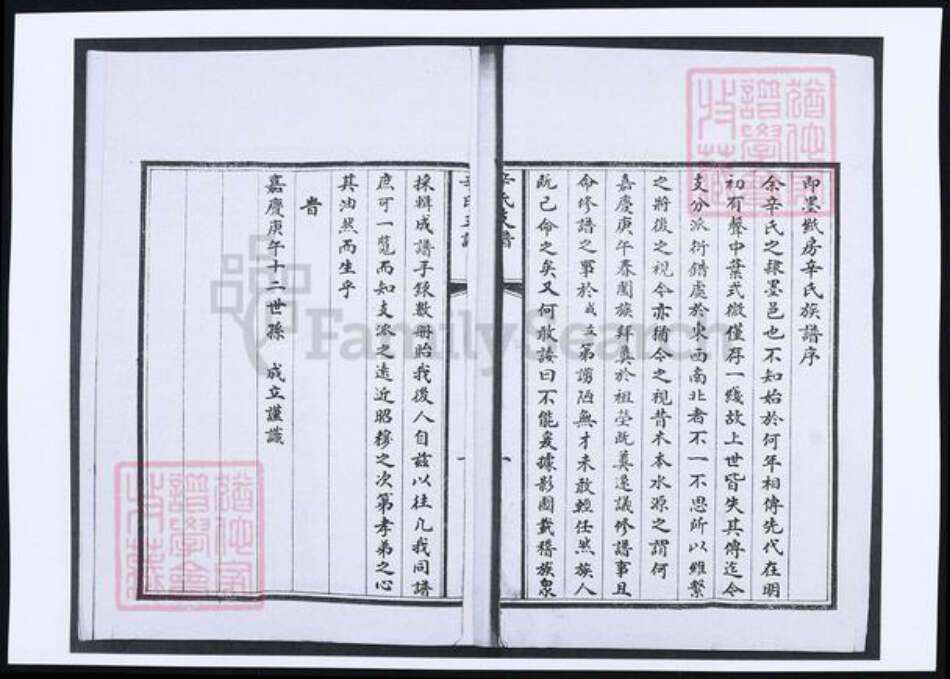 即墨緱房辛氏族譜序
余辛氏之隸墨邑也不知始於何年相傳先代在明
初有聲中葉式微僅存一綫故上世皆失其傳迄今
支分派衍錯處於東西南北者不一不思所以維繫
之將後之視今亦猶今之視昔木本水源之謂何
嘉慶庚午春闔族拜奠於祖塋既奠退議修譜事且
命修譜之事於成立第謭陋無才未敢輕任然族人
既已命之矣又何敢諉曰不能爰據影圖戴稽族眾
辛氏支譜
一
採輯成譜手錄數冊貽我後人自茲以往凡我同譜
庶可一覽而知支派之遠近昭穆之次第孝弟之心
其油然而生乎
旹
嘉慶庚午十二世孫 成立謹識
FamilySearch